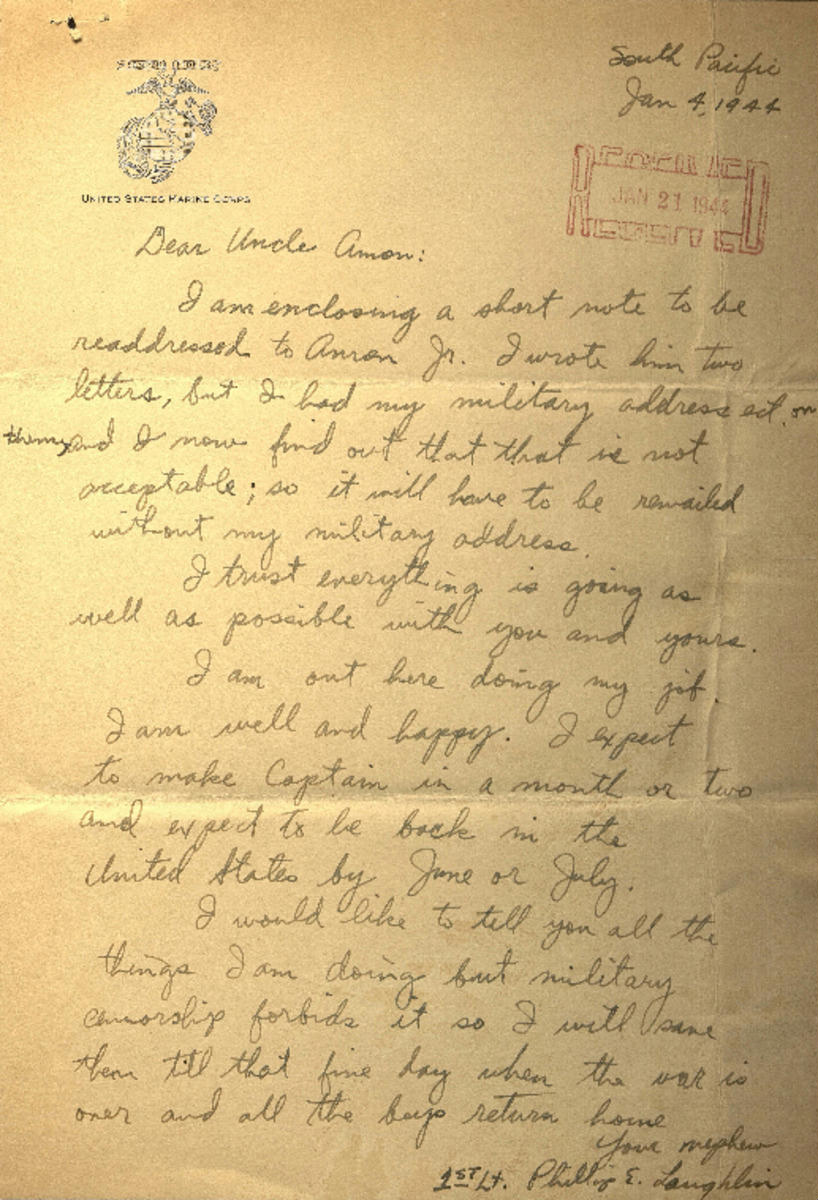 South Pacific
Jan 4, 1944
UNITED STATES MARINE CORPS
JAN 21 1944
Dear Uncle Amon:
I am enclosing a short note to be
readdressed to Amon Jr. I wrote him two
letters, but I had my military address ect. on
them, and I now find out that that is not
acceptable; so it will have to be remailed
without my military address.
I trust everything is going as
well as possible with you and yours.
I am out here doing my job.
I am well and happy. I expect
to make Captain in a month or two
and expect to be back in the
United States by June or July.
I would like to tell you all the
things I am doing but military
censorship forbids it so I will save
them till that fine day when the war is
over and all the boys return home
Your nephew
1ST Lt. Phillip E. Laughlin